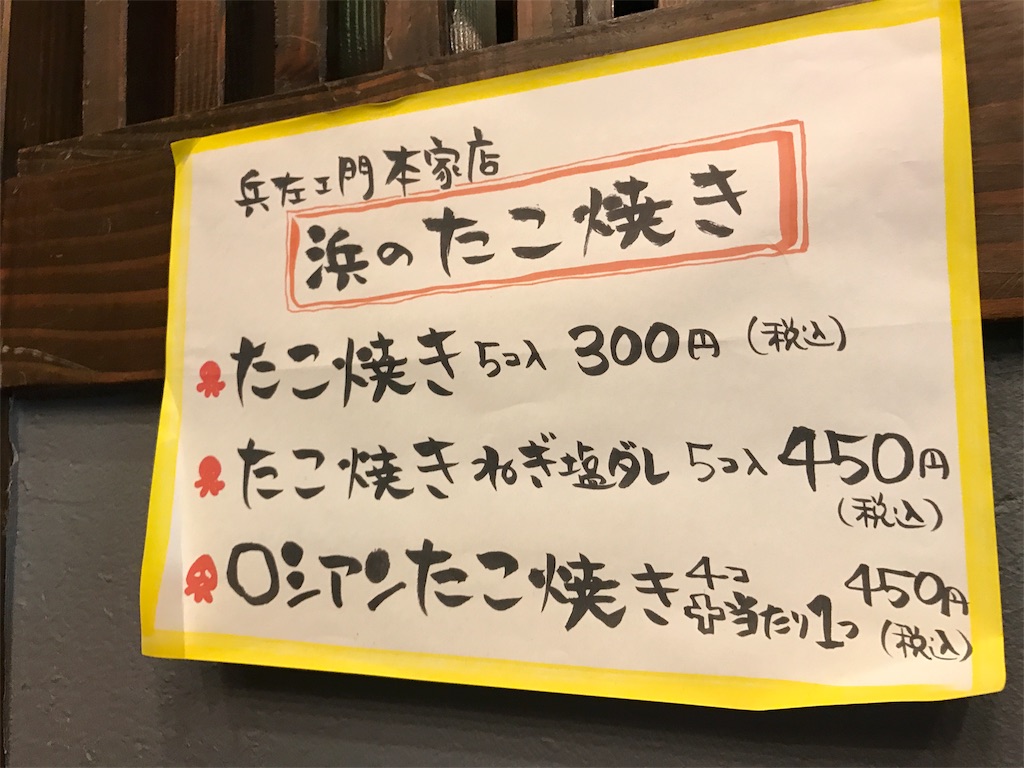 兵左ェ門本家店
浜のたこ焼き
たこ焼き 5コ入 300円 (税込)
たこ焼き ねぎ塩ダレ 5コ入 450円
(税込)
ロシアンたこ焼き 4コ 450円
➕当たり1つ (税込)